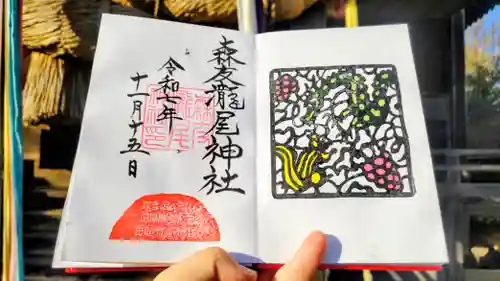 森友瀧尾神社
令和七年
十一月十五日